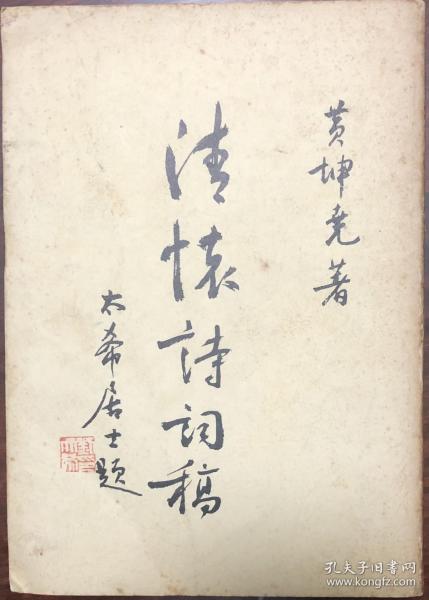 黄坤尧著
清懷詩詞稿
太希居士題
孔夫子旧书网
www.kongfz.com